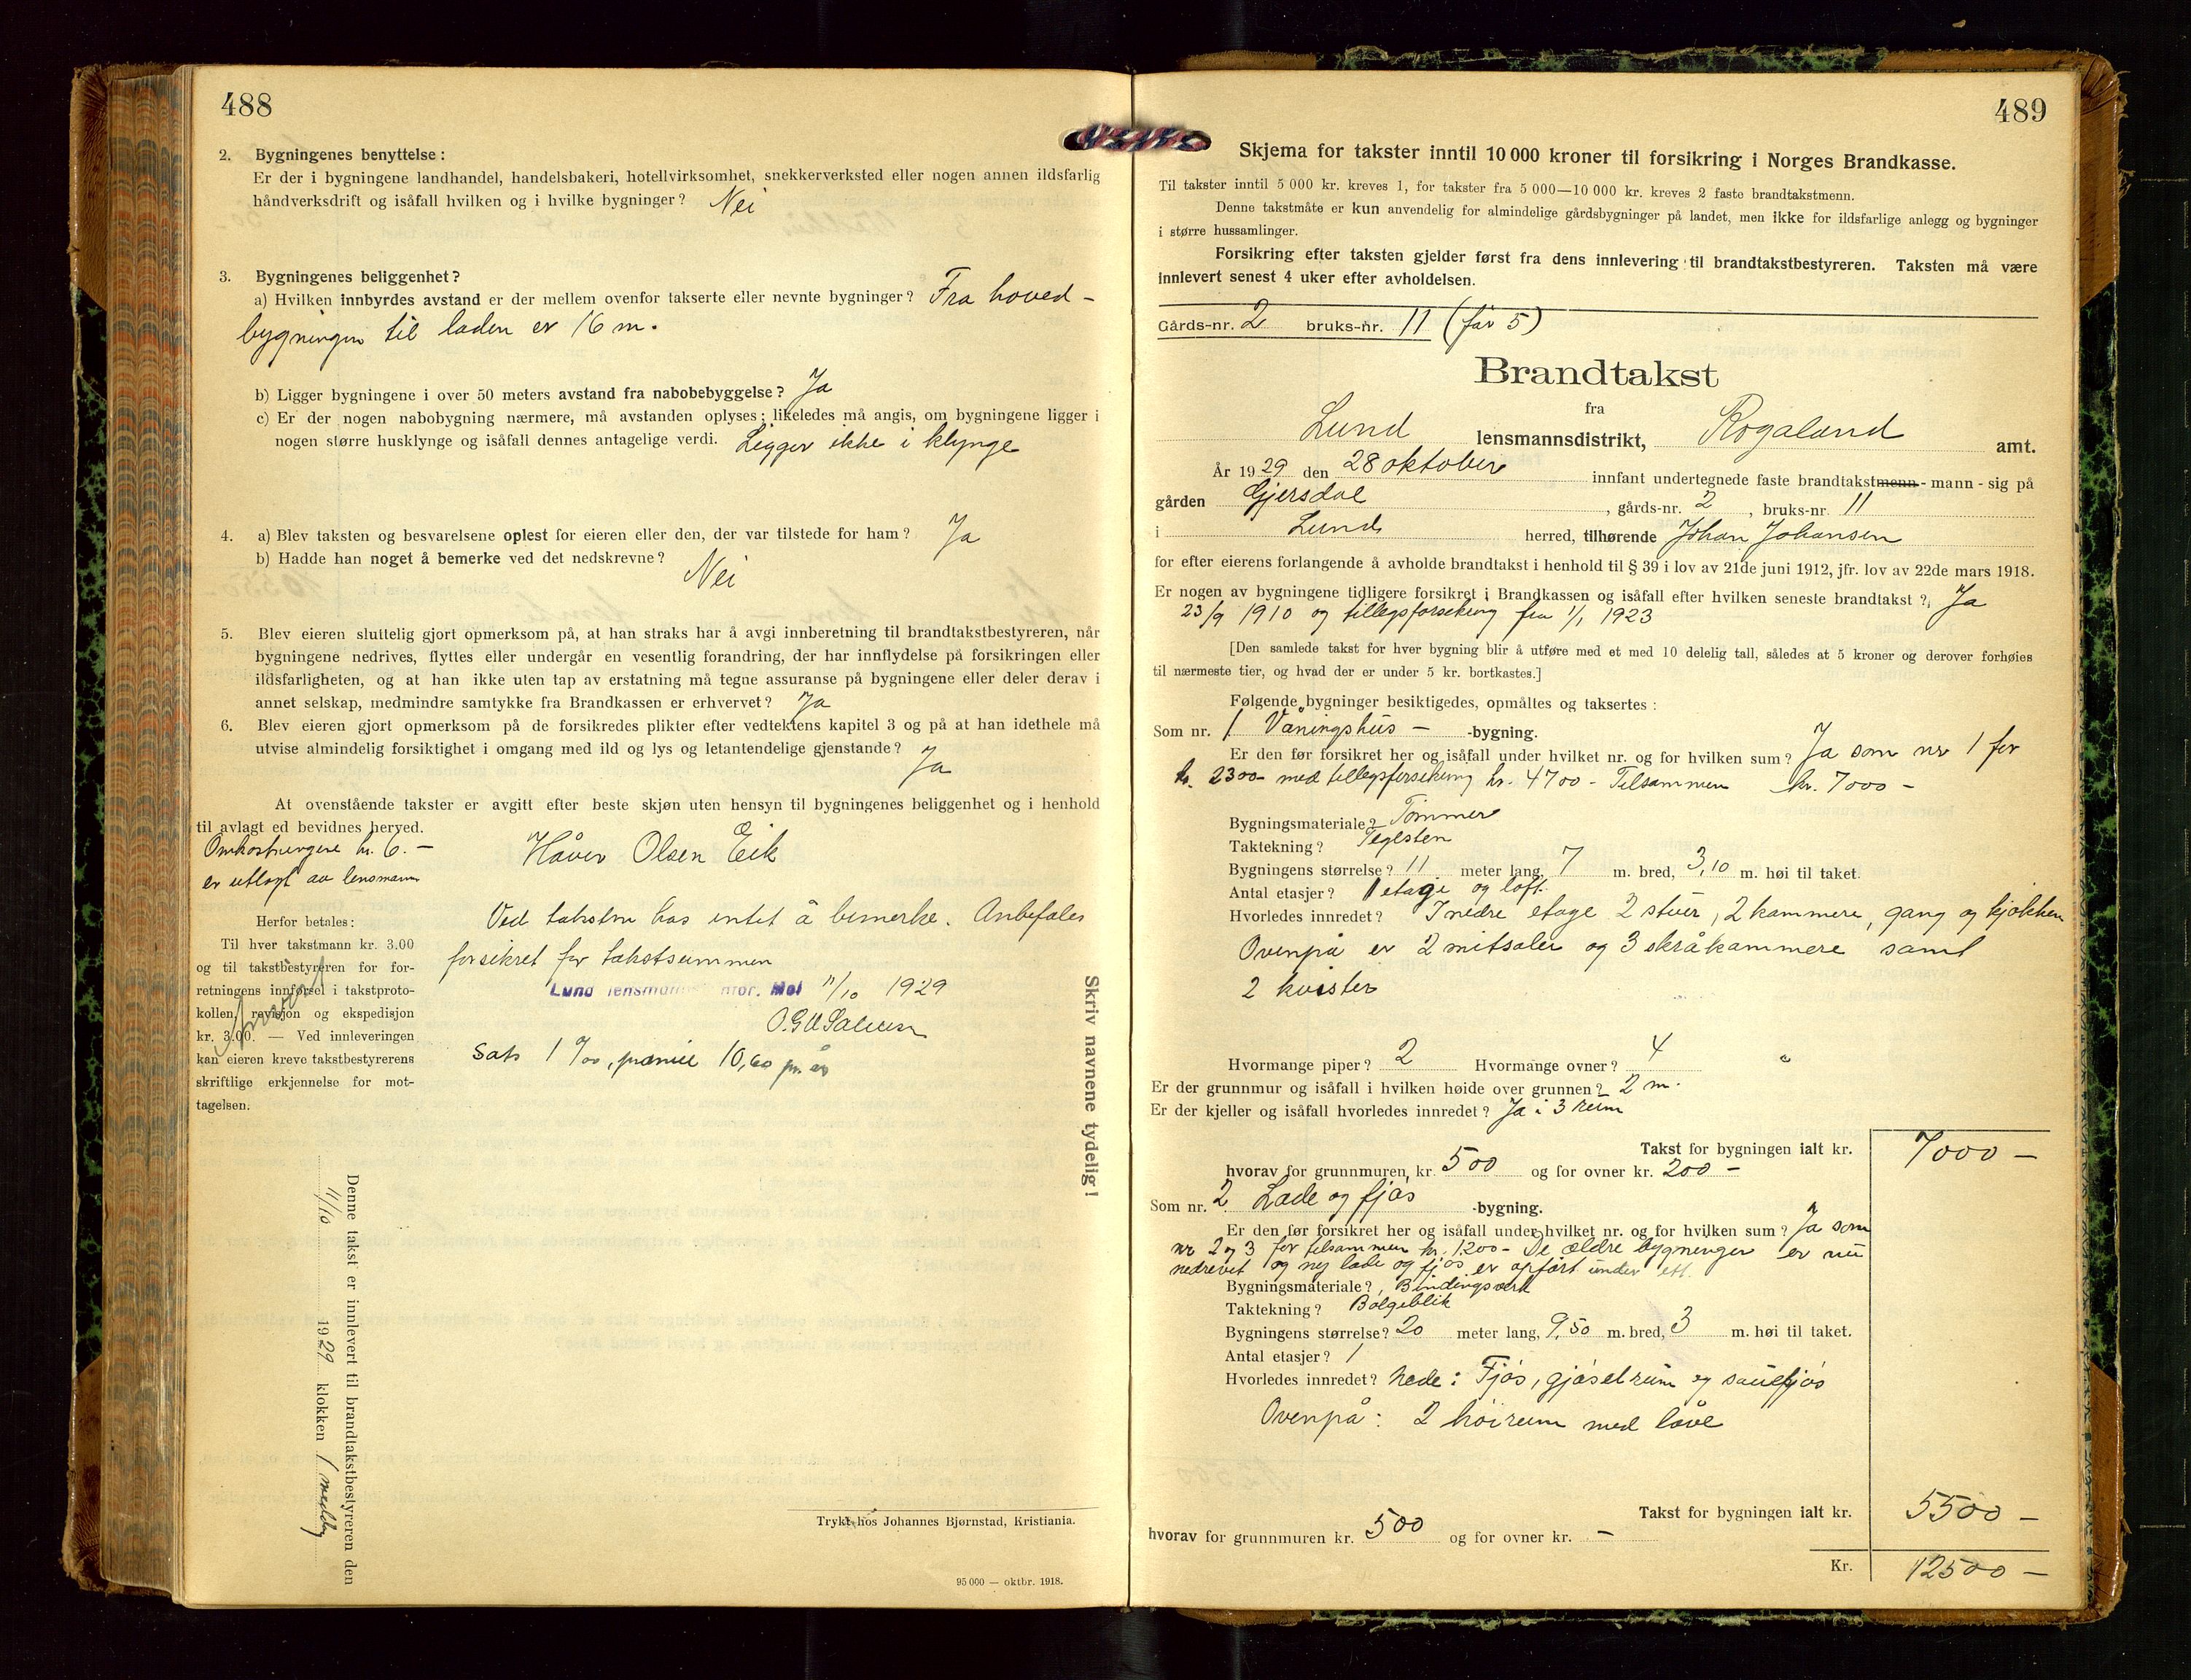 488
2. Bygningenes benyttelse:
Er der i bygningene landhandel, handelsbakeri, hotellvirksomhet, snekkerverksted eller nogen annen ildsfarlig
håndverksdrift og isåfall hvilken og i hvilke bygninger? Nei
3. Bygningenes beliggenhet?
a) Hvilken innbyrdes avstand er der mellem ovenfor takserte eller nevnte bygninger? Fra hoved-
bygningen til laden er 16 m.
b) Ligger bygningene i over 50 meters avstand fra nabobebyggelse? Ja
c) Er der nogen nabobygning nærmere, må avstanden oplyses; likeledes må angis, om bygningene ligger i
nogen større husklynge og isåfall dennes antagelige verdi. Ligger ikke i klynge
4. a) Blev taksten og besvarelsene oplest for eieren eller den, der var tilstede for ham? Ja
b) Hadde han noget å bemerke ved det nedskrevne? Nei
5. Blev eieren sluttelig gjort opmerksom på, at han straks har å avgi innberetning til brandtakstbestyreren, når
bygningene nedrives, flyttes eller undergår en vesentlig forandring, der har innflydelse på forsikringen eller
ildsfarligheten, og at han ikke uten tap av erstatning må tegne assuranse på bygningene eller deler derav i
annet selskap, medmindre samtykke fra Brandkassen er erhvervet? Ja
6. Blev eieren gjort opmerksom på de forsikredes plikter efter vedtektens kapitel 3 og på at han idethele må
utvise almindelig forsiktighet i omgang med ild og lys og letantendelige gjenstande? Ja
At ovenstående takster er avgitt efter beste skjøn uten hensyn til bygningenes beliggenhet og i henhold
til avlagt ed bevidnes herved.
Omkostningene kr. 6.—
er utlagt av lensmann
Håver Olsen Eik
Herfor betales:
Til hver takstmann kr. 3.00
og til takstbestyreren for for-
retningens innførsel i takstproto-
kollen, revisjon og ekspedisjon
kr. 3.00. — Ved innleveringen
kan eieren kreve takstbestyrerens
skriftlige erkjennelse for mot-
tagelsen.
Ved taksten has intet å bemerke. Anbefales
forsikret for takstsummen
Lund lensmanns Moi 11/10 1929
Sats 1 ‰, præmie 10,60 pr. år
Skriv navnene tydelig!
Denne takst er innlevert til brandtakstbestyreren den
11/10 1929 klokken 1 meddg
Trykt hos Johannes Bjørnstad, Kristiania.
95 000 — oktbr. 1918.
489
Skjema for takster inntil 10 000 kroner til forsikring i Norges Brandkasse.
Til takster inntil 5 000 kr. kreves 1, for takster fra 5 000—10 000 kr. kreves 2 faste brandtakstmenn.
Denne takstmåte er kun anvendelig for almindelige gårdsbygninger på landet, men ikke for ildsfarlige anlegg og bygninger
i større hussamlinger.
Forsikring efter taksten gjelder først fra dens innlevering til brandtakstbestyreren. Taksten må være
innlevert senest 4 uker efter avholdelsen.
Gårds-nr. 2 bruks-nr. 11 (før 5)
Brandtakst
fra
Lund lensmannsdistrikt, Rogaland amt.
År 1929 den 28 oktober innfant undertegnede faste brandtakstmenn - mann - sig på
gården Gjersdal, gårds-nr. 2, bruks-nr. 11
i Lund herred, tilhørende Johan Johansen
for efter eierens forlangende å avholde brandtakst i henhold til § 39 i lov av 21de juni 1912, jfr. lov av 22de mars 1918.
Er nogen av bygningene tidligere forsikret i Brandkassen og isåfall efter hvilken seneste brandtakst? Ja
23/9 1910 og tillegsforsikring fra 1/1 1923
[Den samlede takst for hver bygning blir å utføre med et med 10 delelig tall, således at 5 kroner og derover forhøies
til nærmeste tier, og hvad der er under 5 kr. bortkastes.]
Følgende bygninger besiktigedes, opmåltes og taksertes:
Som nr. 1 Våningshus - -bygning.
Er den før forsikret her og isåfall under hvilket nr. og for hvilken sum? Ja som nr 1 for
kr. 2300 med tillegsforsikring kr. 4700 - Tilsammen kr. 7000 -
Bygningsmateriale? Tømmer
Taktekning? Teglsten
Bygningens størrelse? 11 meter lang, 7 m. bred, 3,10 m. høi til taket.
Antal etasjer? 1 etage og loft.
Hvorledes innredet? I nedre etage 2 stuer, 2 kammere, gang og kjøkken
Ovenpå er 2 mitsaler og 3 skråkammere samt
2 kvister
Hvormange piper? 2 Hvormange ovner? 4
Er der grunnmur og isåfall i hvilken høide over grunnen? 2 m.
Er der kjeller og isåfall hvorledes innredet? Ja i 3 rum
Takst for bygningen ialt kr. 7000 —
hvorav for grunnmuren, kr. 500 og for ovner kr. 200 -
Som nr. 2 Lade og fjøs -bygning.
Er den før forsikret her og isåfall under hvilket nr. og for hvilken sum? Ja som
nr 2 og 3 for tilsammen kr. 1200 - De ældre bygninger er nu
nedrevet og ny lade og fjøs er opført under ett.
Bygningsmateriale? Bindingsverk
Taktekning? Bølgeblik
Bygningens størrelse? 20 meter lang, 9,50 m. bred, 3 m. høi til taket.
Antal etasjer? 1
Hvorledes innredet? Nede: Fjøs, gjødselrum og sauefjøs
Ovenpå: 2 høirum med løve
Takst for bygningen ialt kr. 5500 —
hvorav for grunnmuren kr. 500 og for ovner kr. -
Kr. 12500 —